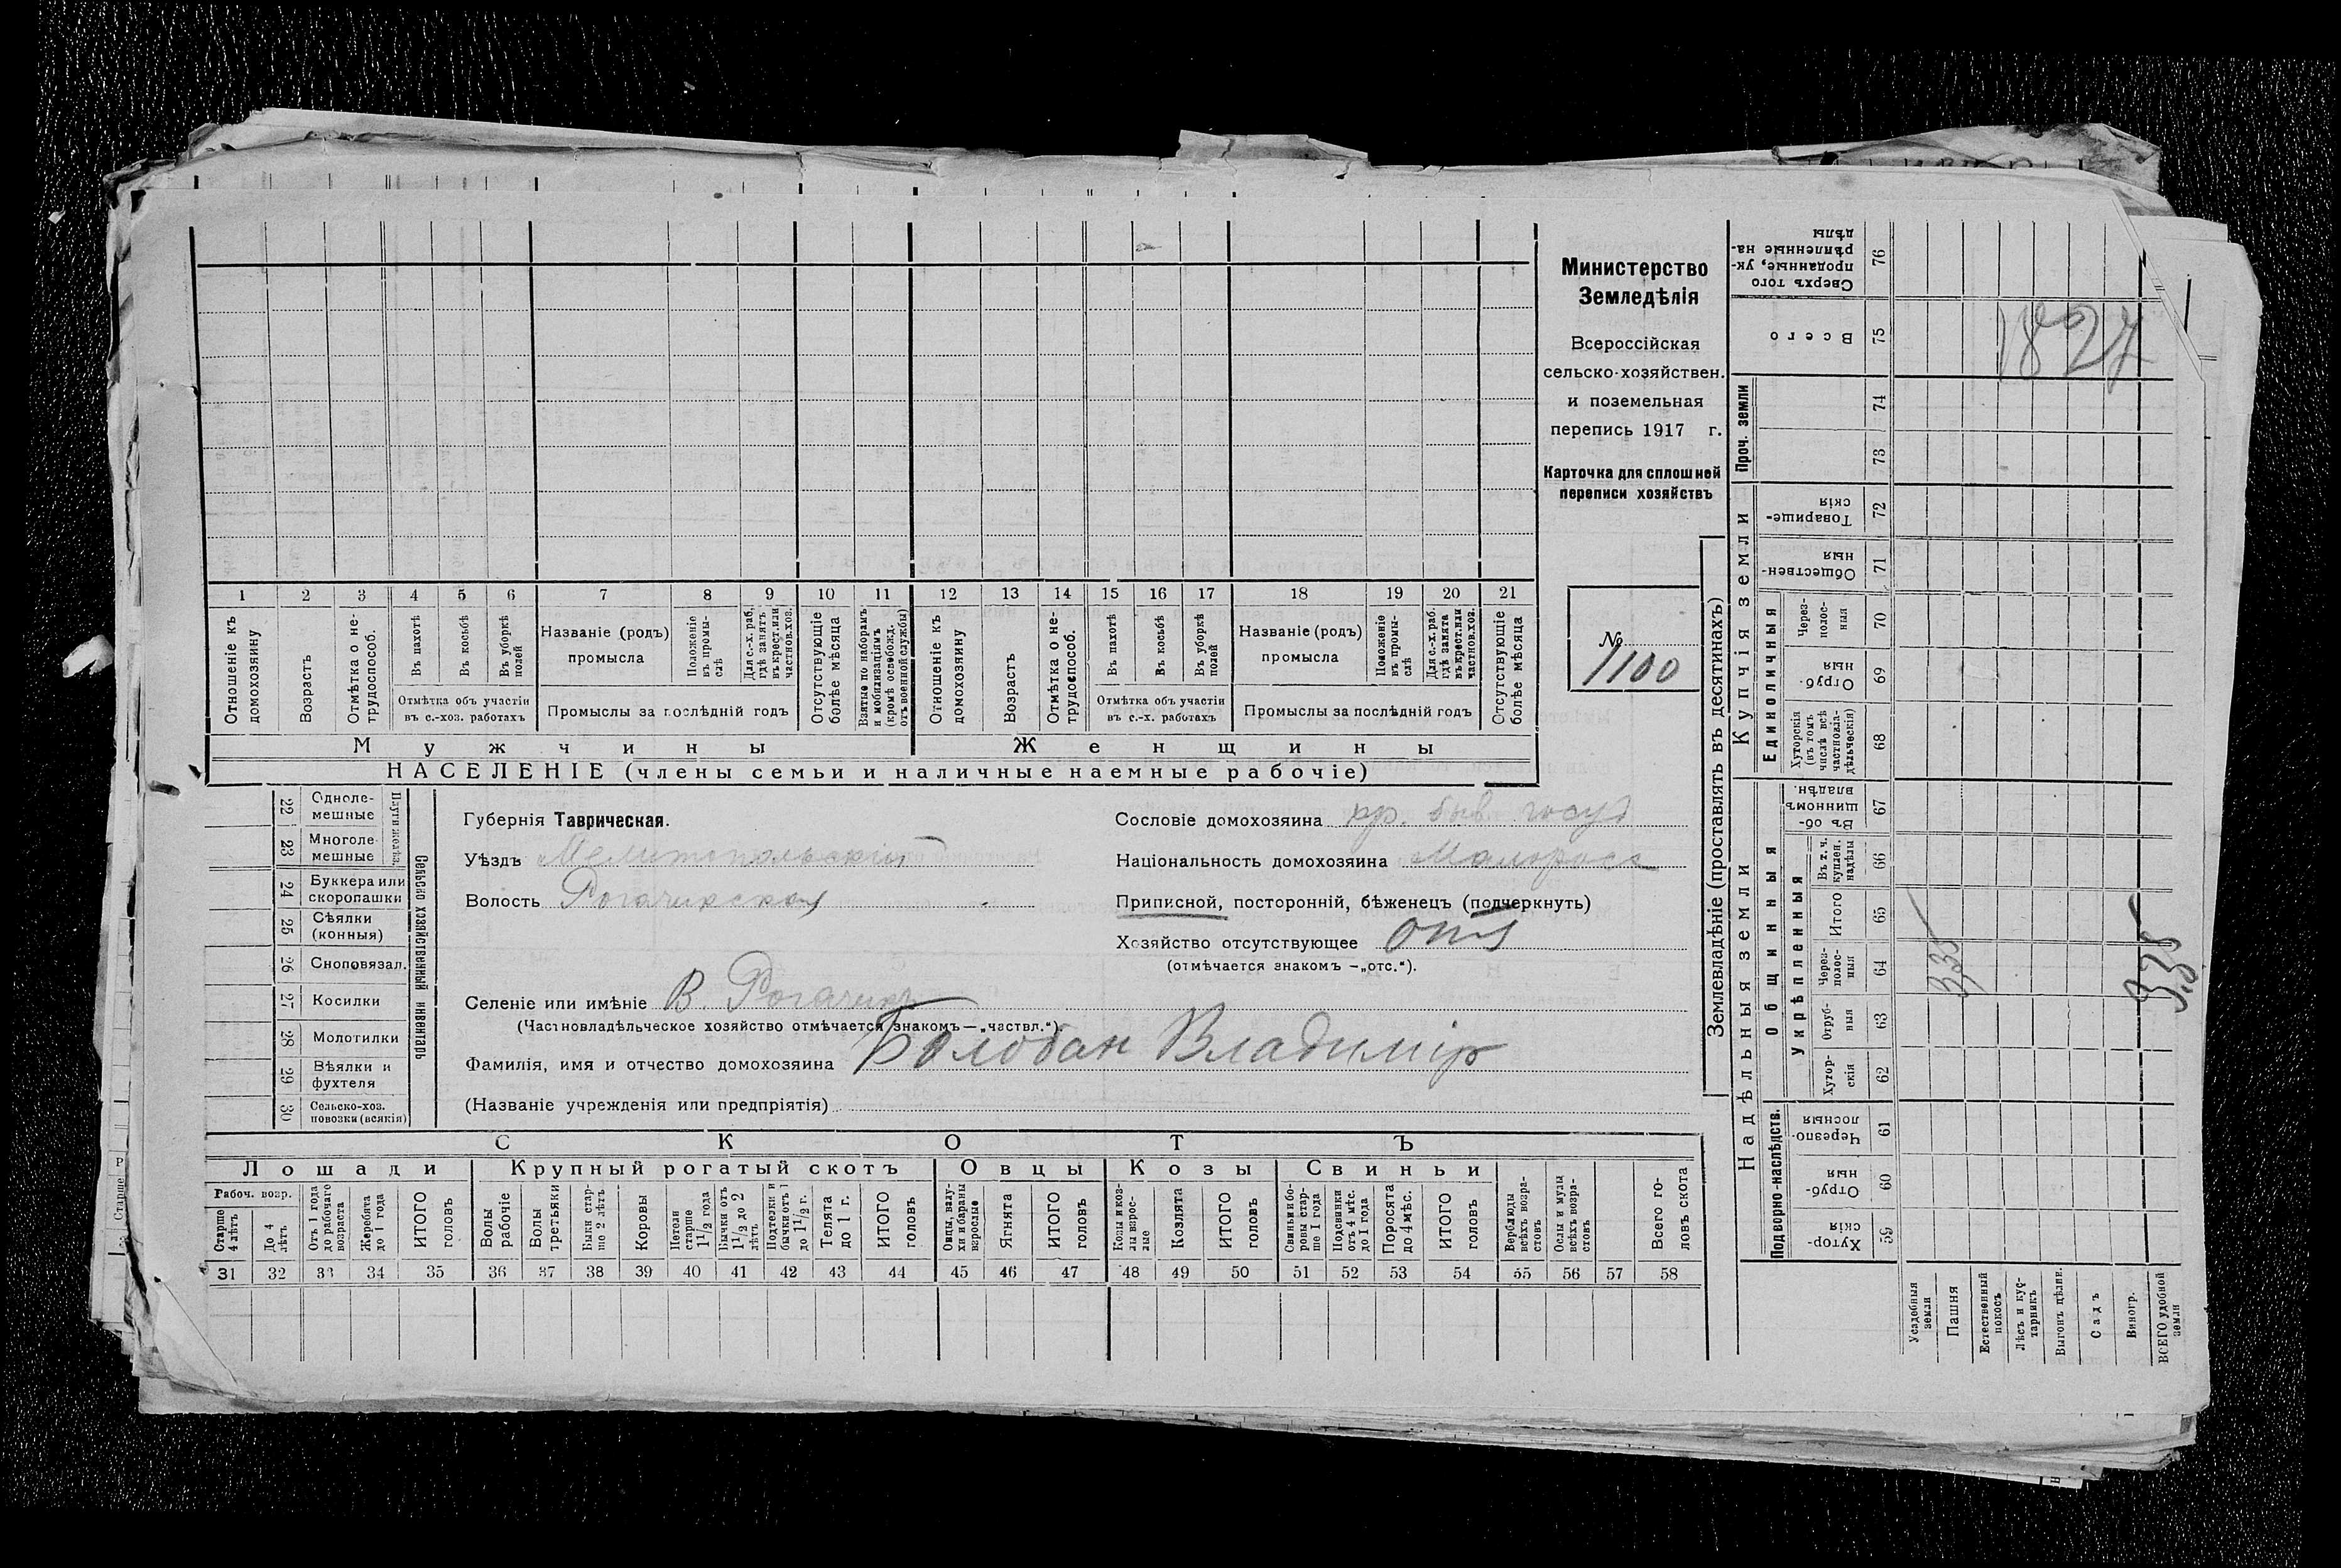 Министерство
Земледѣлія
Всероссійская
сельско-хозяйствен.
и поземельная
перепись 1917 г.
Карточка для сплошней
переписи хозяйствъ
№
1100
1 2 3 4 5 6 7 8 9 10 11 12 13 14 15 16 17 18 19 20 21
Отношеніе къ домохозяину
Возрастъ
Отмѣтка о не-трудоспособ.
Въ пахотѣ
Въ косьбѣ
Въ уборкѣ полей
Отмѣтка объ участіи въ с.-хоз. работахъ
Названіе (родъ) промысла
Положеніе въ промы-слѣ
Для с.-х. раб. гдѣ занятъ въ крест. или частнов. хоз.
Промыслы за послѣдній годъ
Отсутствующіе болѣе мѣсяца
Взятые по наборамъ и мобилизаціямъ (кромѣ освобожд. отъ военной службы)
Отношеніе къ домохозяину
Возрастъ
Отмѣтка о не-трудоспособ.
Въ пахотѣ
Въ косьбѣ
Въ уборкѣ полей
Отмѣтка объ участіи въ с.-х. работахъ
Названіе (родъ) промысла
Положеніе въ промы-слѣ
Для с.-х. раб. гдѣ занята въ крест. или частнов. хоз.
Промыслы за послѣдній годъ
Отсутствующіе болѣе мѣсяца
Мужчины Женщины
НАСЕЛЕНІЕ (члены семьи и наличные наемные рабочіе)
Сельско хозяйственный инвентарь
22 Одноле-мешные
23 Многоле-мешные
24 Буккера или скоропашки
25 Сѣялки (конныя)
26 Сноповязал.
27 Косилки
28 Молотилки
29 Вѣялки и фухтеля
30 Сельско-хоз. повозки (всякія)
Губернія Таврическая.
Уѣздъ Мелитопольскій
Волость Рогачикская
Сословіе домохозяина кр. быв. госуд
Національность домохозяина Малоросс
Приписной, посторонній, бѣженецъ (подчеркнуть)
Хозяйство отсутствующее отс
(отмѣчается знакомъ —„отс.“).
Селеніе или имѣніе В. Рогачикъ
(Частновладѣльческое хозяйство отмѣчается знакомъ—„частвл.“)
Фамилія, имя и отчество домохозяина Болобан Владимір
(Названіе учрежденія или предпріятія)
СКОТЪ
Лошади Крупный рогатый скотъ Овцы Козы Свиньи
Рабоч. возр.
Старше 4 лѣтъ
До 4 лѣтъ
Отъ 1 года до рабочаго возраста
Жеребята до 1 года
ИТОГО головъ
Волы рабочіе
Волы третьяки
Быки стар-ше 2 лѣтъ
Коровы
Нетели старше 1 1/2 года
Бычки отъ 1 1/2 до 2 лѣтъ
Подтелки и бычки отъ 1 до 1 1/2 г.
Телята до 1 г.
ИТОГО головъ
Овцы, валу-хи и бараны взрослые
Ягнята
ИТОГО головъ
Козы и коз-лы взрос-лые
Козлята
ИТОГО головъ
Свиньи и бо-ровы стар-ше 1 года
Подсвинки отъ 4 мѣс. до 1 года
Поросята до 4 мѣс.
ИТОГО головъ
Верблюды всѣхъ возра-стовъ
Ослы и мулы всѣхъ возра-стовъ
Всего го-ловъ скота
31 32 33 34 35 36 37 38 39 40 41 42 43 44 45 46 47 48 49 50 51 52 53 54 55 56 57 58
Землевладѣніе (проставлять въ десятинахъ)
Надѣльныя земли Купчія земли Проч. земли
Подворно-наслѣдств.
Общинныя
Укрѣпленныя
Единоличныя
59 Хутор-скія
60 Отруб-ныя
61 Черезпо-лосныя
62 Хутор-скія
63 Отруб-ныя
64 Через-полос-ныя
65 Итого
66 Въ т. ч. куплен. надѣлы
67 Въ об-щинномъ владѣн.
68 Хуторскія (въ томъ числѣ всѣ частновла-дѣльческія)
69 Отруб-ныя
70 Через-полос-ныя
71 Обществен-ныя
72 Товарище-скія
73
74
75 Всего
76 Сверхъ того проданные, ук-рѣпленные на-дѣлы
Усадебныя земли
Пашня
Естественный покосъ
Лѣсъ и кус-тарникъ
Выгонъ цѣлин.
Садъ
Виногр.
ВСЕГО удобной земли
335